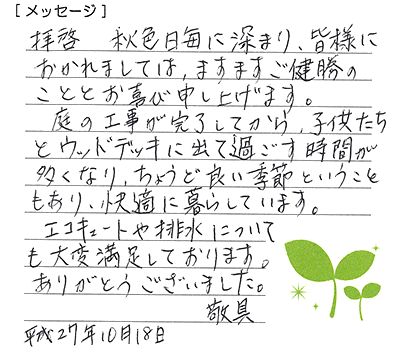 [メッセージ]
拝啓　秋色日毎に深まり、皆様に
おかれましては、ますますご健勝の
こととお喜び申し上げます。
庭の工事が完了してから、子供たち
とウッドデッキに出て過ごす時間が
多くなり、ちょうど良い季節ということ
もあり、快適に暮らしています。
エコキュートや排水について
も大変満足しております。
ありがとうございました。
敬具
平成27年10月18日